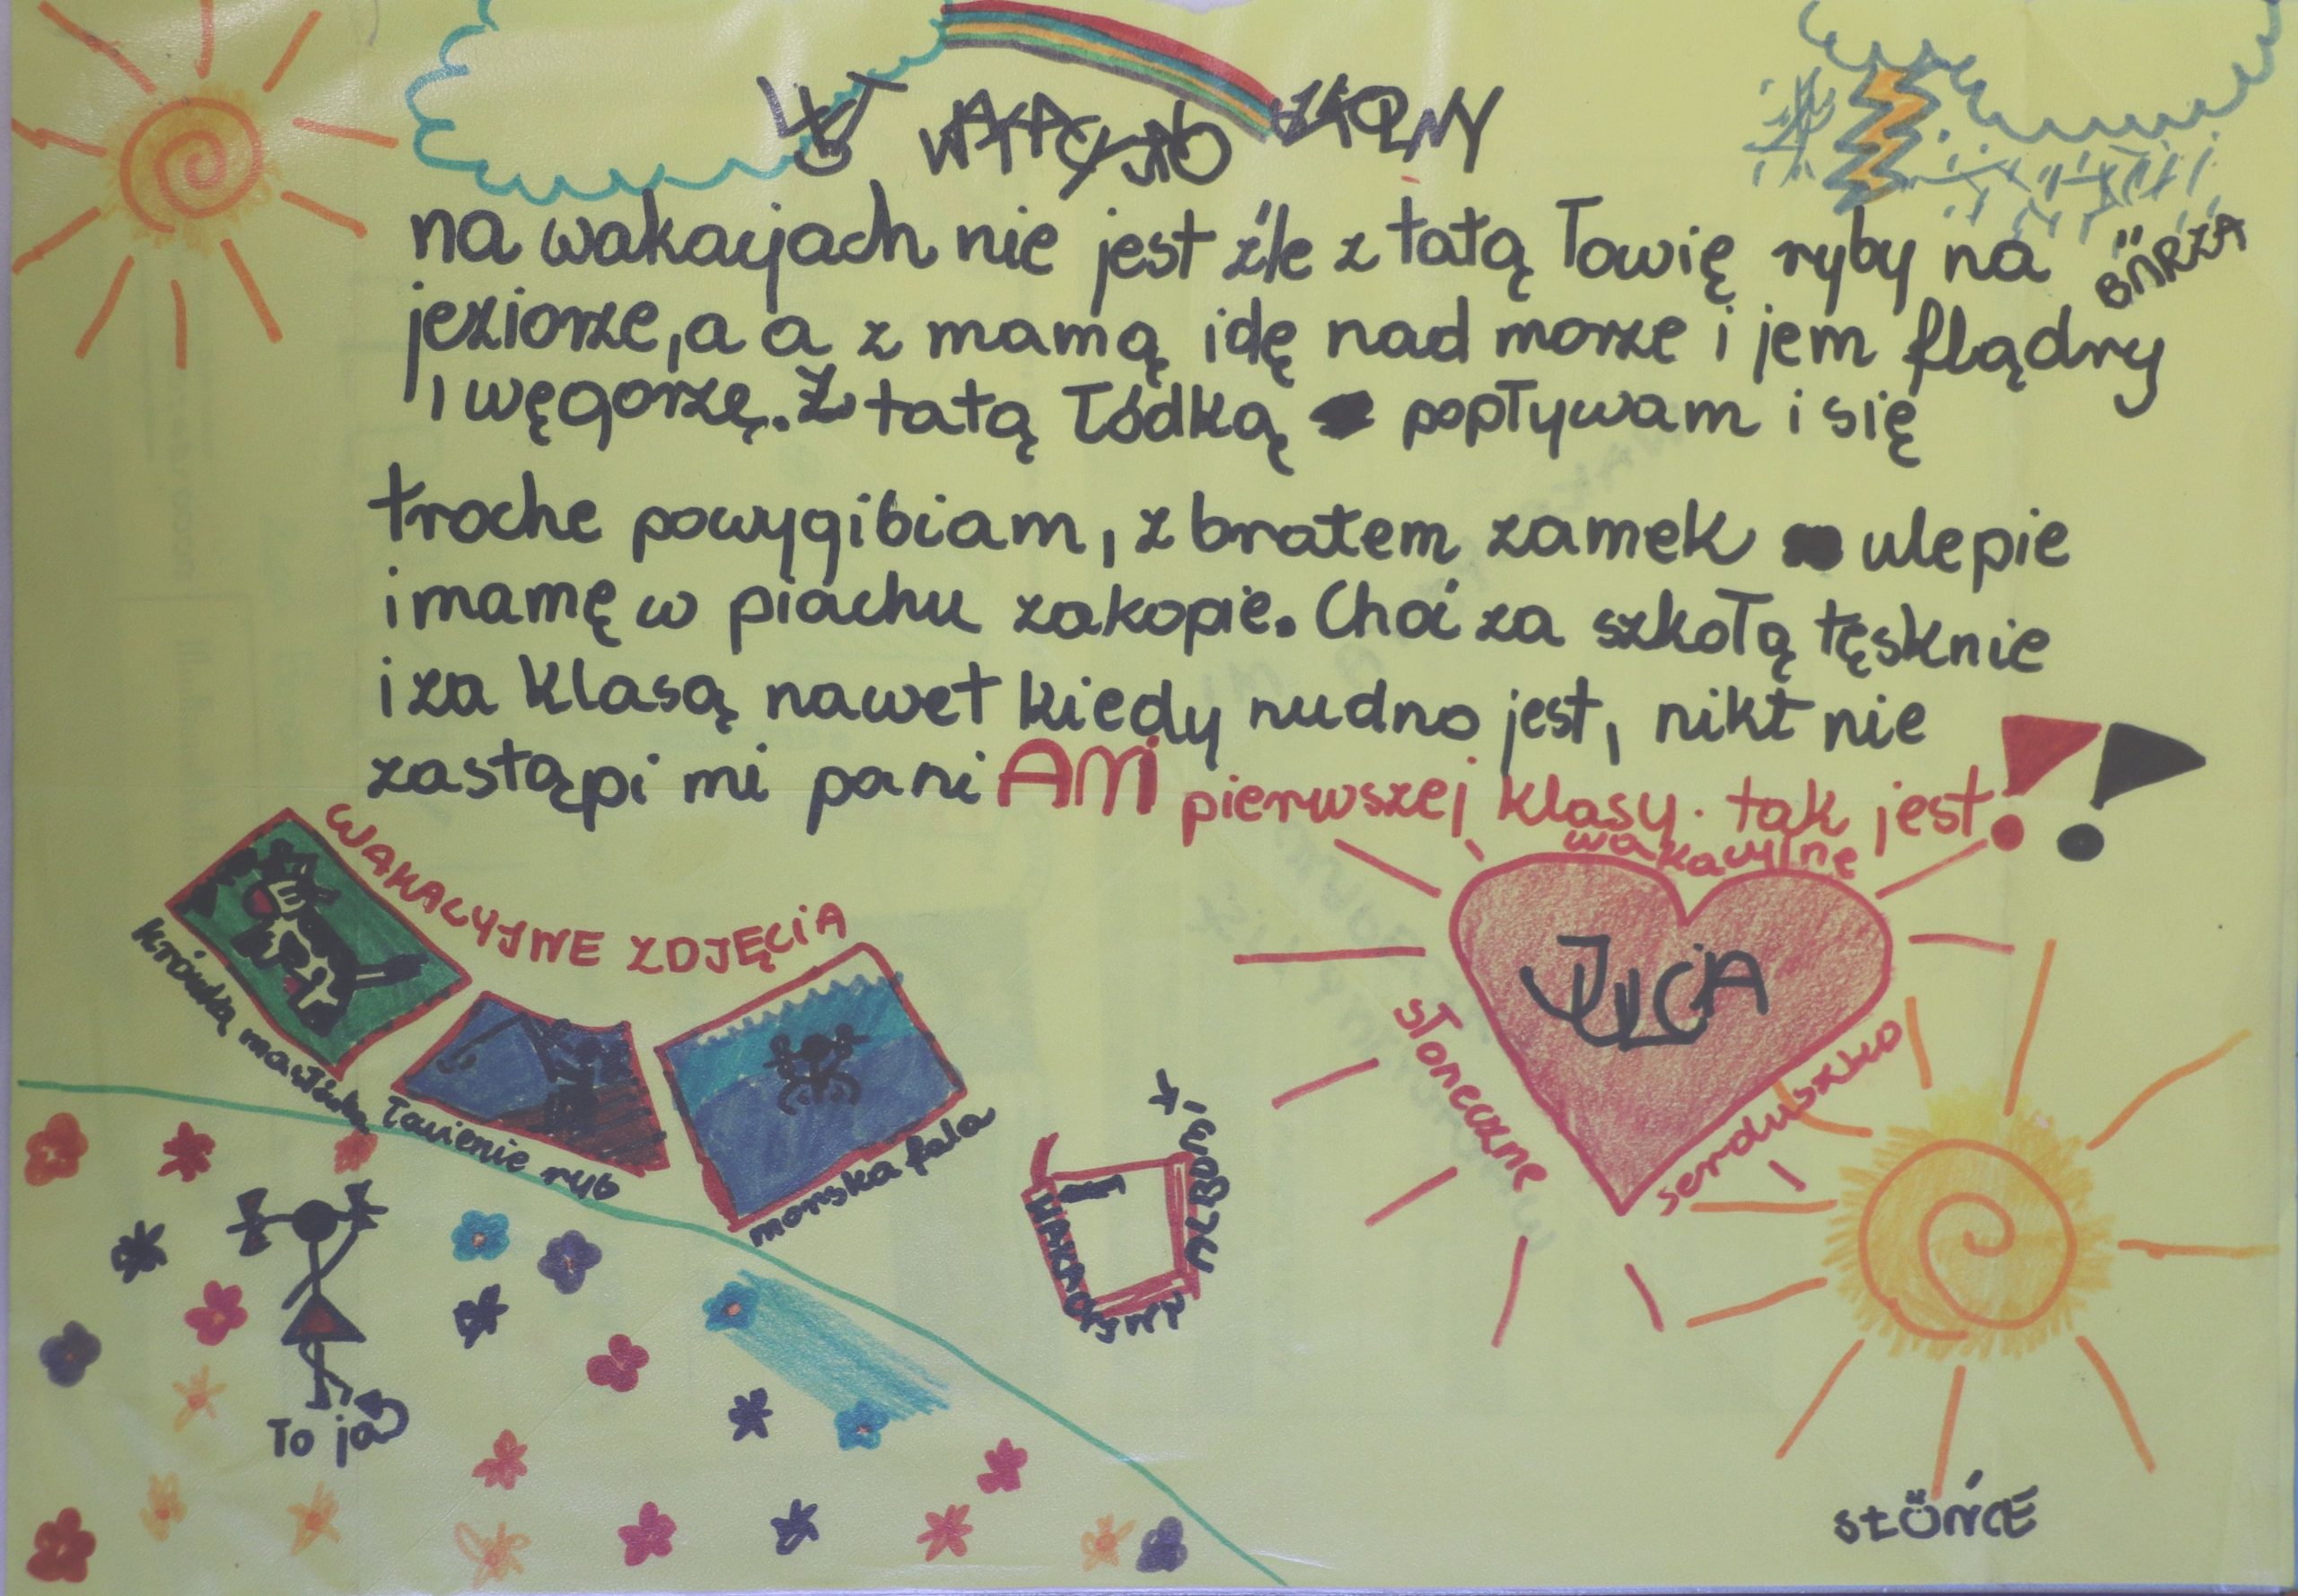 LIST WAKACYJNO SZKOLNY
na wakacjach nie jest źle z tatą łowię ryby na
jeziorze, a a z mamą idę nad morze i jem flądry
i węgorze. Z tatą łódką popływam i się
troche powygibiam, z bratem zamek ulepie
i mamę w piachu zakopie. Choć za szkołą tęsknie
i za klasą nawet kiedy nudno jest, nikt nie
zastąpi mi pani AMI pierwszej klasy. tak jest!!
BÜRZA
WAKACYJNE ZDJĘCIA
krówką mastówką
łowienie ryb
morska fala
To ja
WAKACYJNY
ALBUMIK
wakacyjne
słoneczne
serduszko
JULCIA
SŁÖŃCE